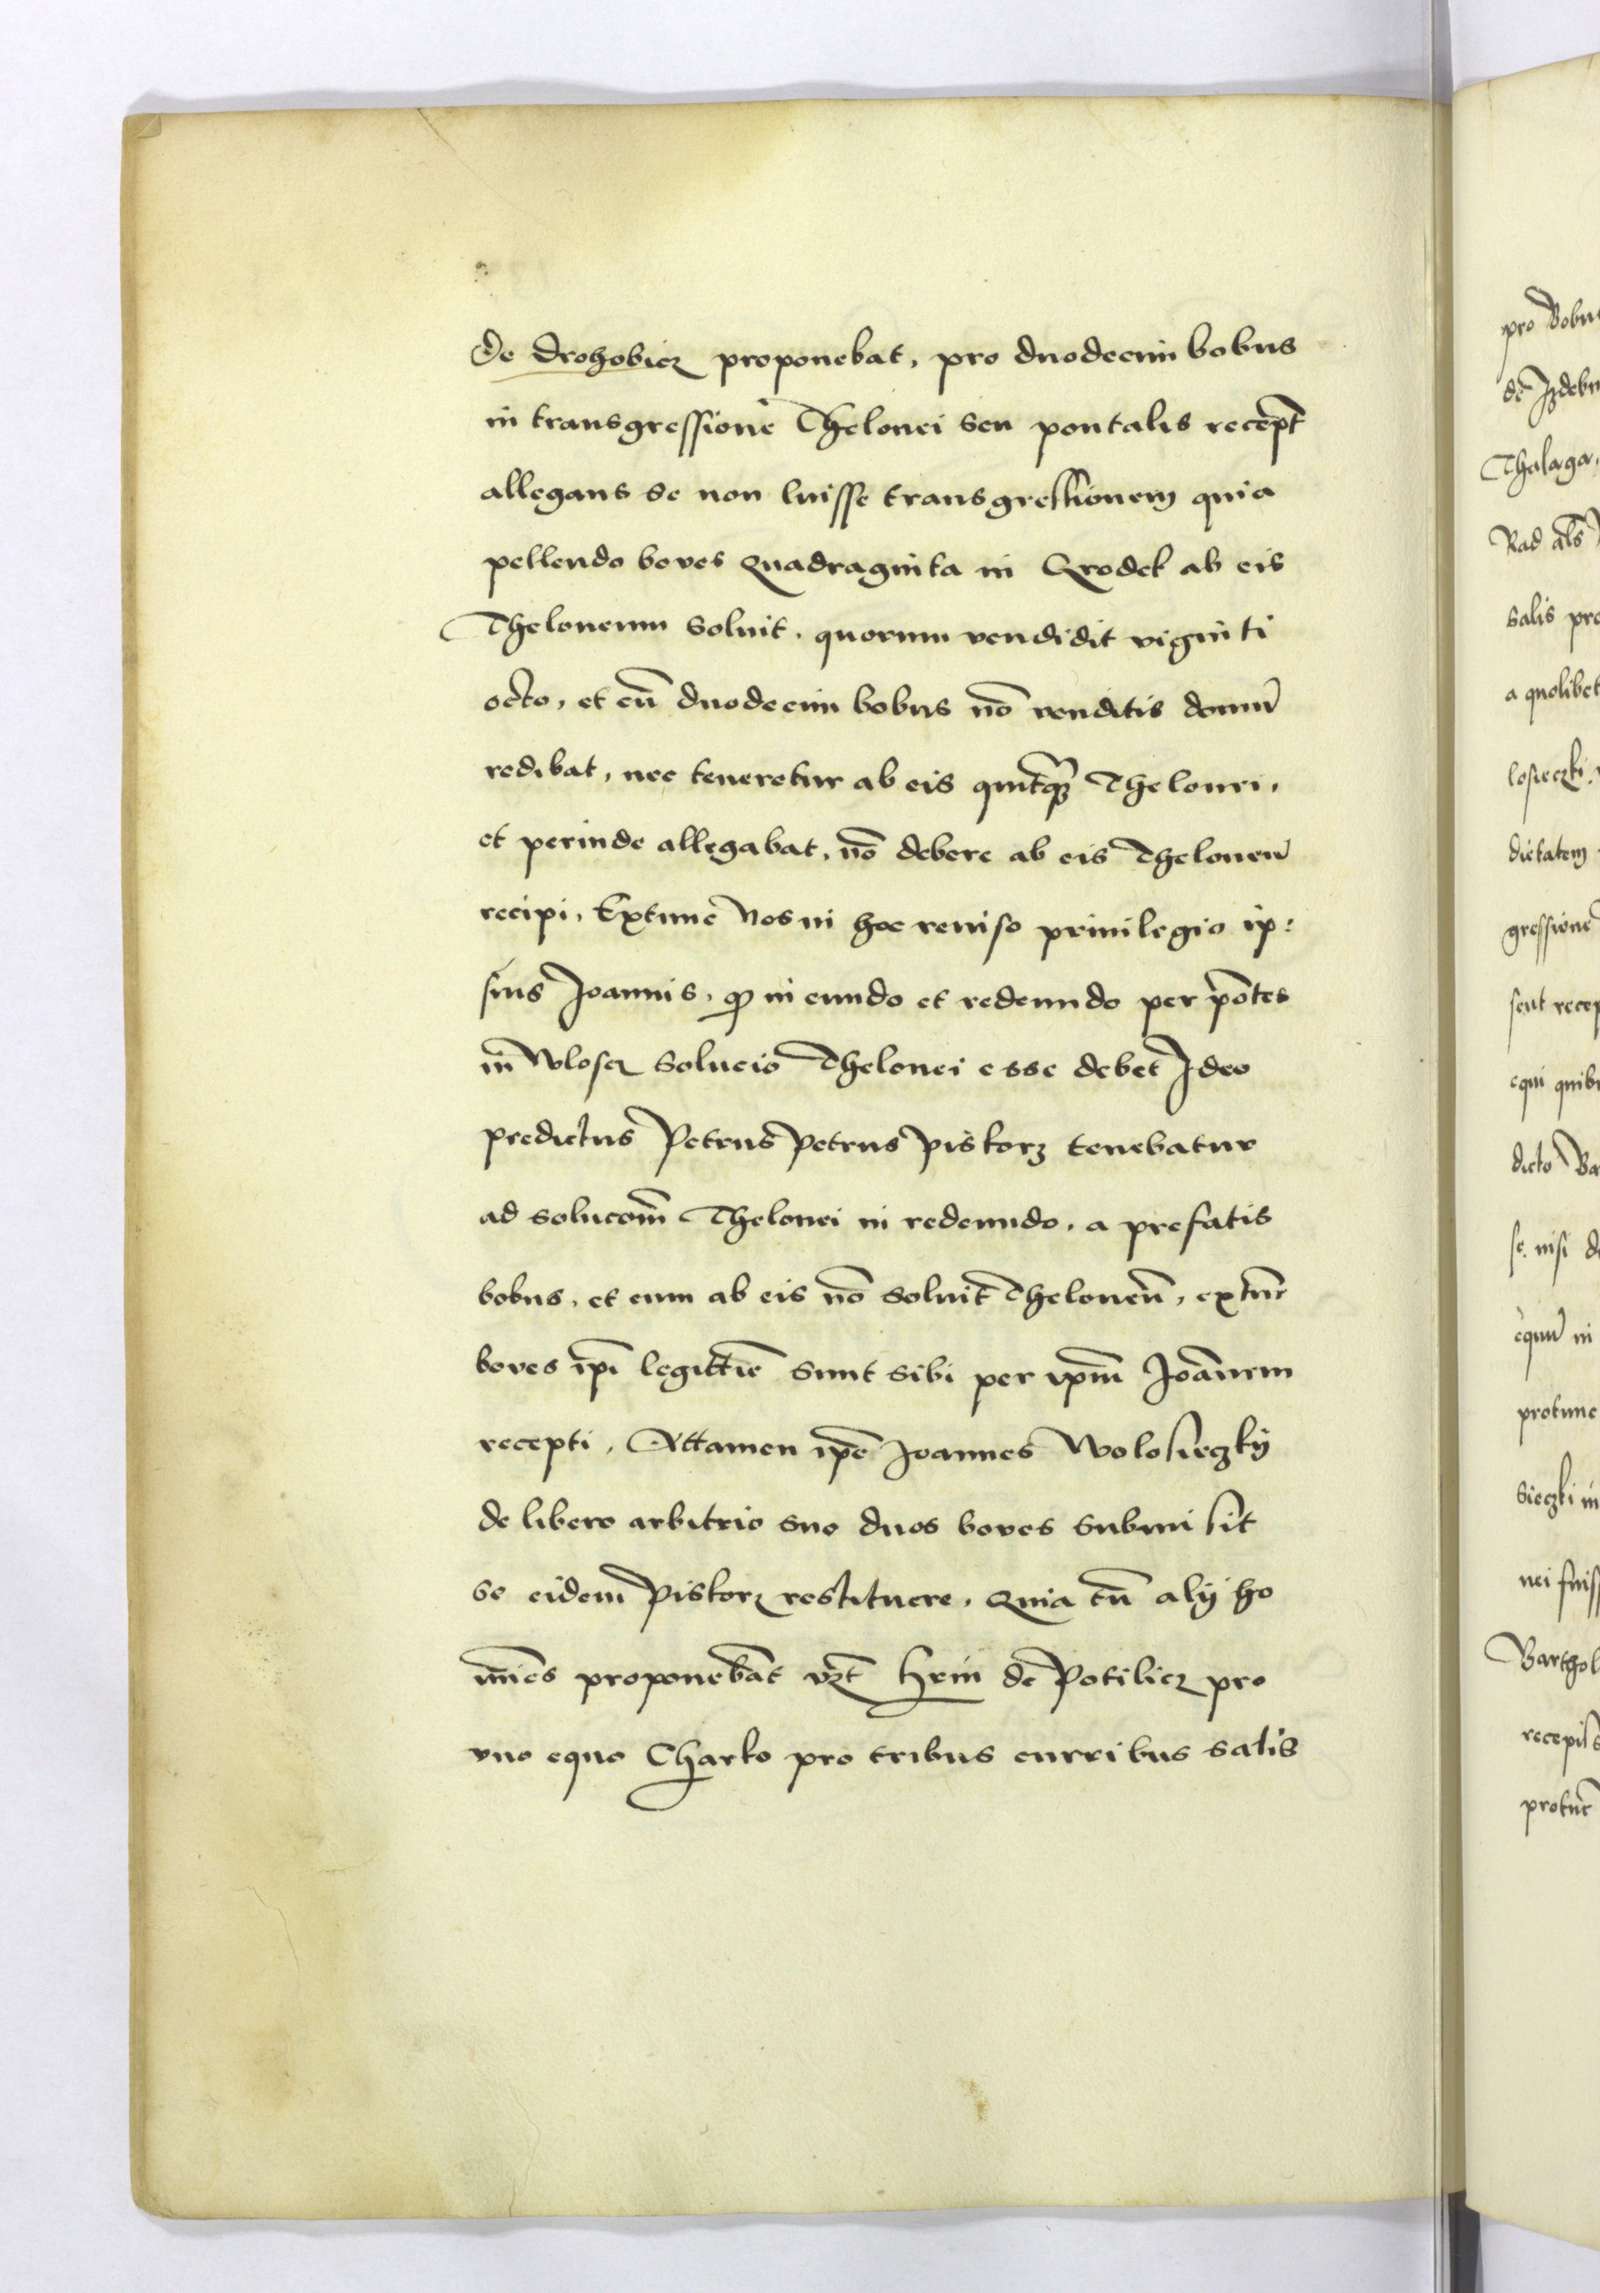 de Drohobicz proponebat, pro duodecim bobus
in transgressione Thelonei seu pontalis recept̄
allegans se non luisse transgressionem quia
pellendo boves Quadraginta in Grodek ab eis
Theloneum soluit, quorum vendidit viginti
octo, et cū duodecim bobus nō venditis domū
redibat, nec teneretur ab eis Thelonei,
et perinde allegabat, nō debere ab eis Theloneū
recipi, Extunc Nos in hoc reuiso priuilegio ip:
sius Joannis, in eundo et redeundo per pōtes
in Wloscz Solucio Thelonei esse debet Ideo
predictus Petrus Petrus Pistorz tenebatur
ad solucōm Thelonei in redeundo, a prefatis
bobus, et cum ab eis nō soluit Theloneū, extūc
boves ip̄i legittīe sunt sibi per ip̄m Joānem
recepti, Attamen ip̄e Joannes Wolosieczky
de libero arbitrio suo duos boves submisit
se eidem Pistorz restituere, Quia cū alÿ ho
mīes proponebāt vz̄t Hrin de Potilicz pro
vno equo Charko pro tribus curribus salis
pro Bobu
de Izdebn
Thalaga,
Rad al̄s
salis pro
a quolibet
losieczki,
dictatem
gressione
sent recep
equi quibu
dicto Ba
se nisi de
equū in
protunc
sieczki in
nei fuiss
Barthol
recepiss
protūc